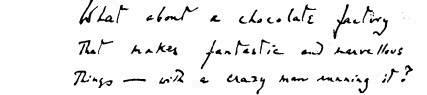 What about a chocolate factory
That makes fantastic and marvellous
Things — with a crazy man running it?